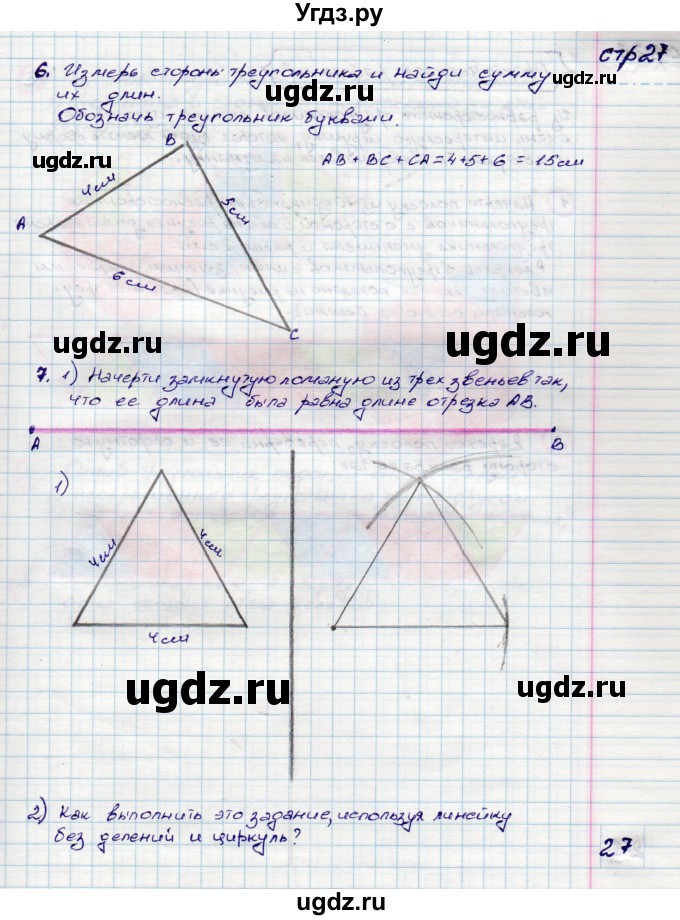 Угдз.ру
стр27
6. Измерь стороны треугольника и найди сумму
их длин.
ugdz.ru
Обозначь треугольник буквами.
B
AB + BC + CA = 4+5+6 = 15см
4см
5см
A
6 см
ugdz.ru
ugdz.ru
C
7. 1) Начерти замкнутую ломаную из трех звеньев так,
что ее длина была равна длине отрезка AB.
A
B
1)
4см
4см
ugdz.ru
ugdz.ru
4см
ugdz.ru
ugdz.ru
2) Как выполнить это задание, используя линейку
без делений и циркуль?
27
ugdz.ru